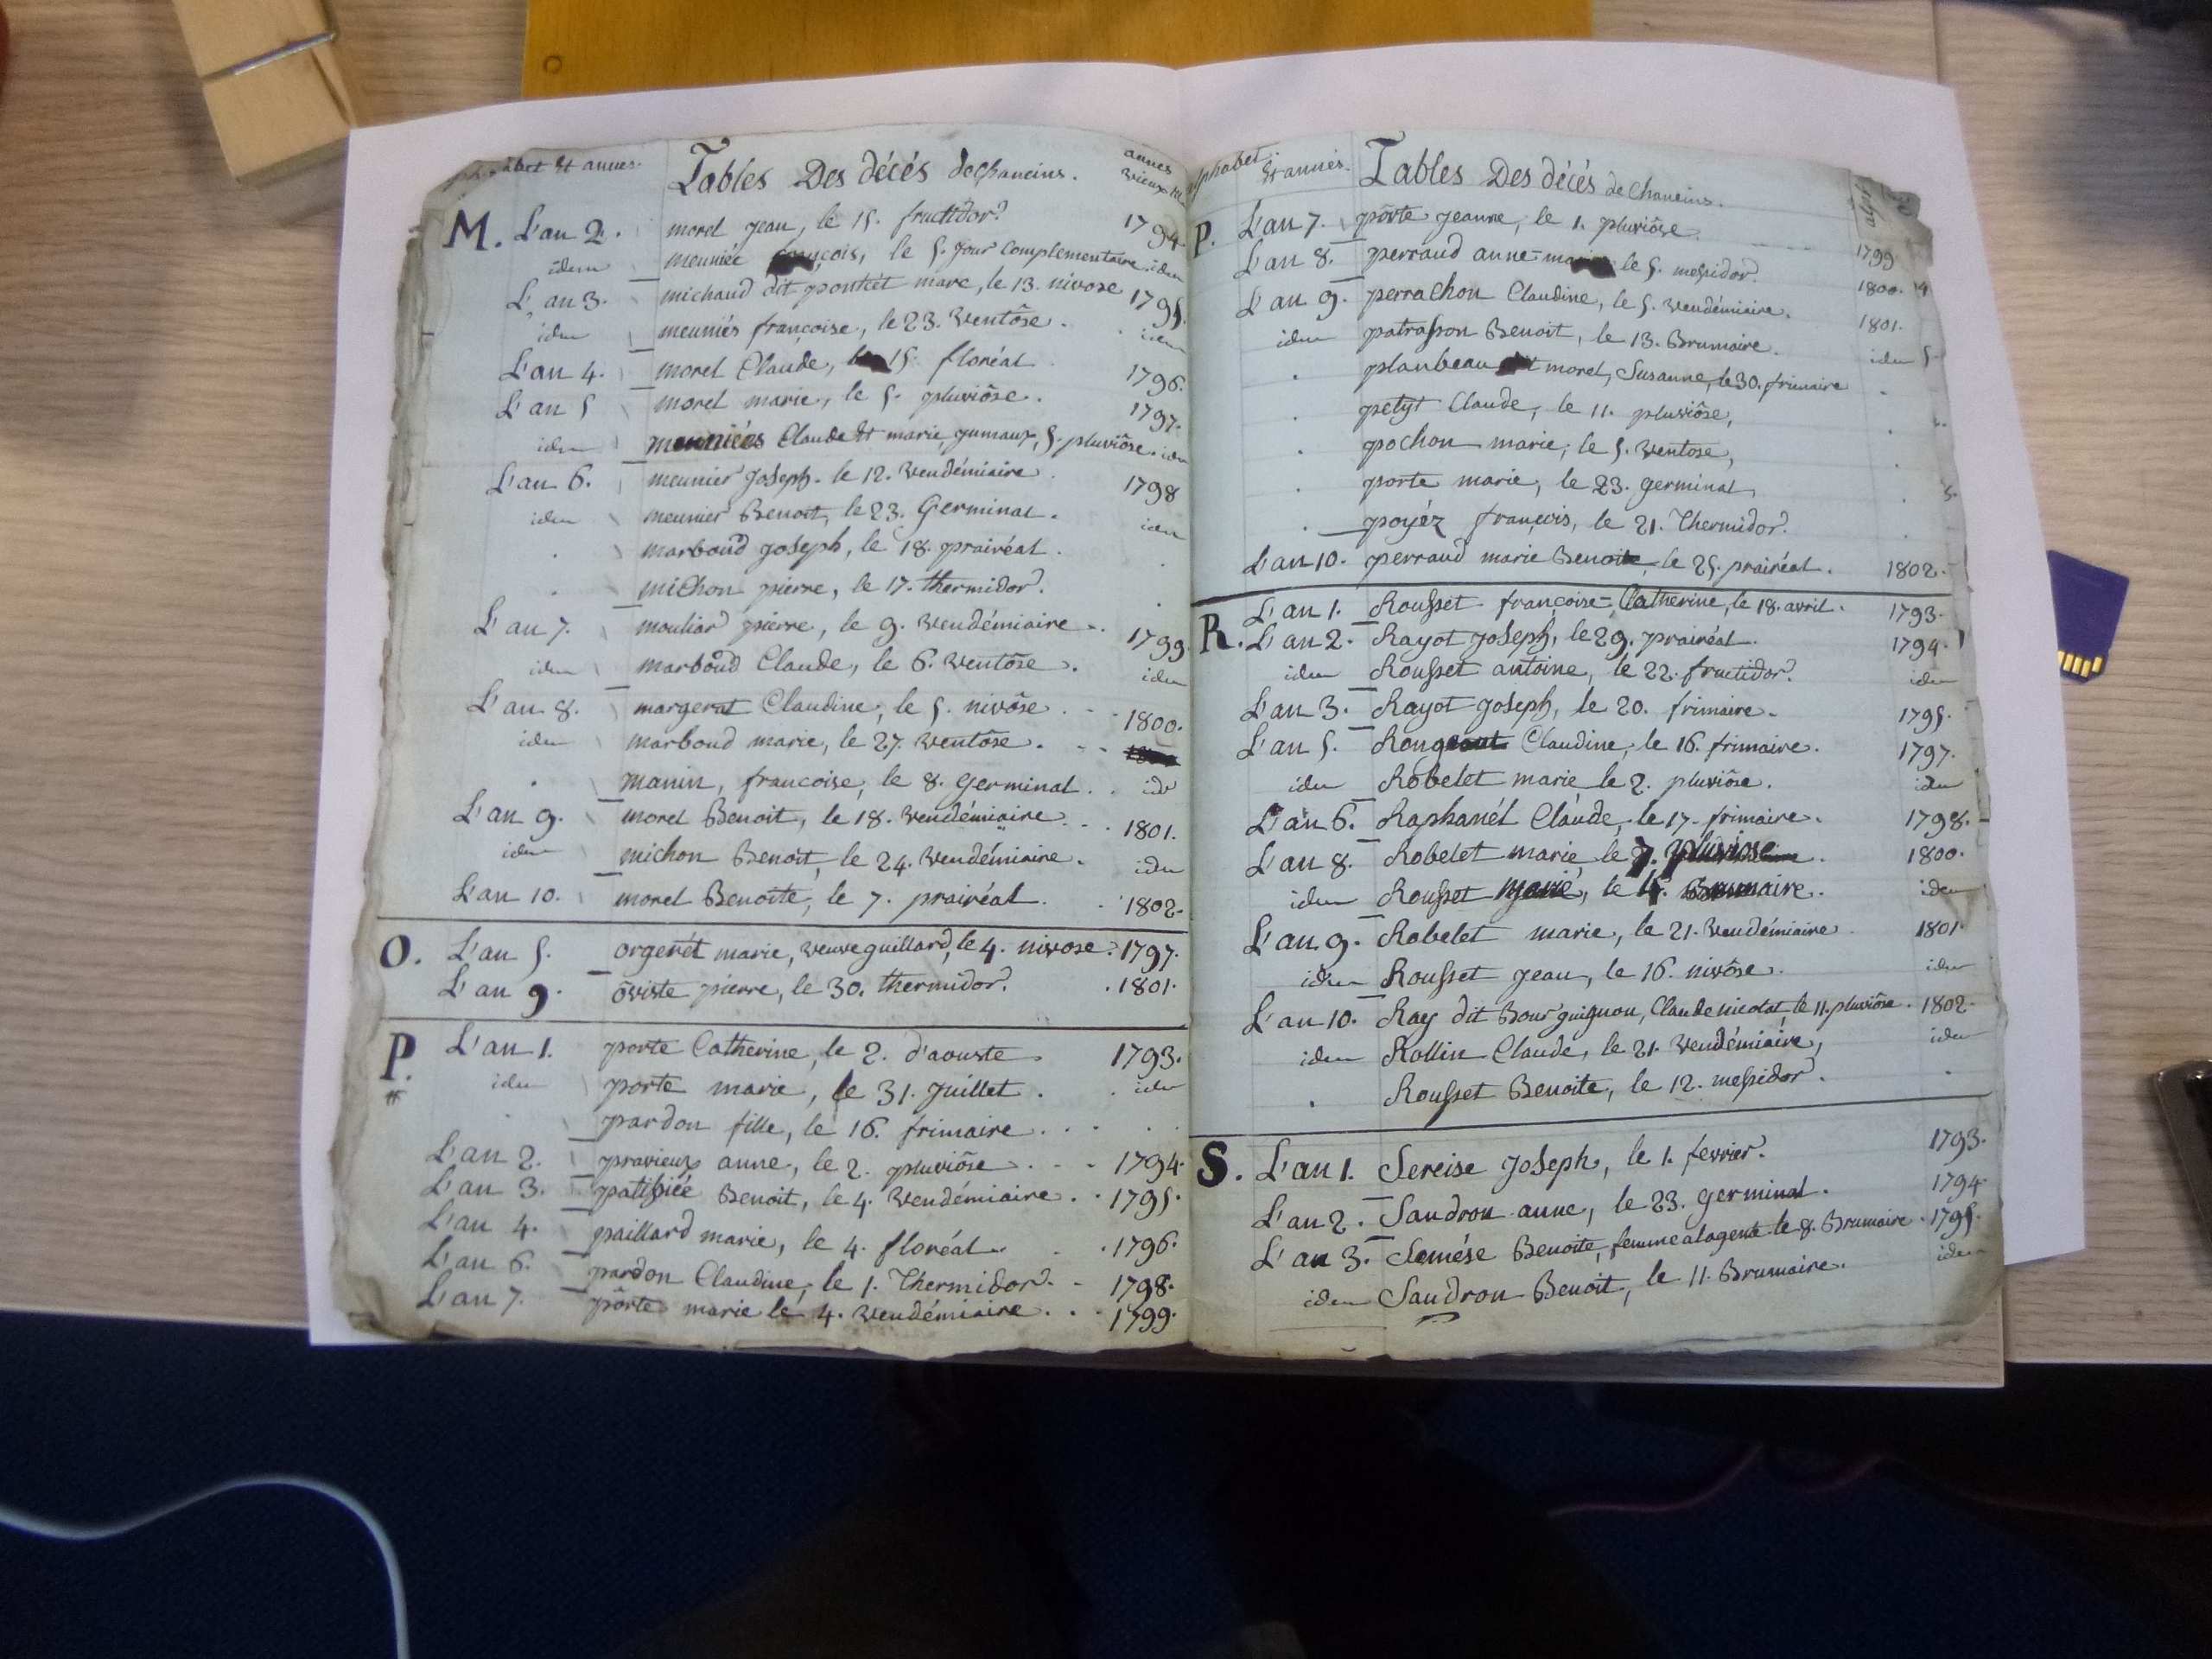 alphabet & annes. Tables Des décés de Chaneins. annes vieux
M. L'an 2. morel jean, le 15. fructidor. 1794.
idem meuniée françois, le 5. jour Complementaire. idem
L'an 3. michaud dit pontet marc, le 13. nivose 1795.
idem meuniés françoise, le 23. Ventôse. idem
L'an 4. morel Claude, le 15. floréal 1796.
L'an 5 morel marie, le 5. pluviôse. 1797.
idem meuniées Claude & marie, jumaux, 5. pluviôse. idem
L'an 6. meunier joseph. le 12. Vendémiaire. 1798
idem meunier Benoit, le 23. Germinal. idem
. marboud joseph, le 18. prairéal. .
. michon pierre, le 17. thermidor. .
L'an 7. mouliar pierre, le 9. Vendémiaire. 1799.
idem marboud Claude, le 6. Ventôse. idem
L'an 8. margerat Claudine, le 5. nivôse. 1800.
idem marboud marie, le 27. Ventôse.
. manin, francoise, le 8. Germinal. idem
L'an 9. morel Benoit, le 18. Vendémiaire. 1801.
idem michon Benoit, le 24. Vendémiaire. idem
L'an 10. morel Benoite, le 7. prairéal. 1802.
O. L'an 5. orgerét marie, Veuve guillard, le 4. nivose. 1797.
L'an 9. ôviste pierre, le 30. thermidor. 1801.
P. L'an 1. porte Catherine, le 2. d'aouste. 1793.
idem porte marie, le 31. juillet. idem
. pardon fille, le 16. frimaire. . .
L'an 2. pravieux anne, le 2. pluviôse. 1794.
L'an 3. patissiée Benoit, le 4. Vendémiaire. 1795.
L'an 4. paillard marie, le 4. floréal. 1796.
L'an 6. pardon Claudine, le 1. Thermidor. 1798.
L'an 7. pôrte marie le 4. Vendémiaire. 1799.
alphabet & annés. Tables Des décés de Chaneins.
P. L'an 7. pôrte jeanne, le 1. pluviôse. 1799
L'an 8. perraud anne=marie le 5. messidor. 1800.
L'an 9. perrachon Claudine, le 5. Vendémiaire. 1801.
idem patrasson Benoit, le 13. Brumaire. idem
. planbeau dit morel, Susanne, le 30. frimaire .
. petyt Claude, le 11. pluviôse, .
. pochon marie, le 5. Ventose, .
. porte marie, le 23. germinal, .
. poyéz françois, le 21. Thermidor. .
L'an 10. perraud marie Benoite, le 25. prairéal. 1802.
R. L'an 1. Rousset françoise=Catherine, le 18. avril. 1793.
L'an 2. Rayot joseph, le 29. prairéal. 1794.
idem Rousset antoine, le 22. fructidor. idem
L'an 3. Rayot joseph, le 20. frimaire. 1795.
L'an 5. Rongeant Claudine, le 16. frimaire. 1797.
idem Robelet marie le 2. pluviôse. idem
L'an 6. Raphanél Claude, le 17. frimaire. 1798.
L'an 8. Robelet marie le 7. pluviose. 1800.
idem Rousset marie, le 4. Brumaire. idem
L'an 9. Robelet marie, le 21. Vendémiaire. 1801.
idem Rousset jean, le 16. nivôse. idem
L'an 10. Ray dit Bourguignon, Claude nicolat, le 11. pluviôse. 1802.
idem Rollin Claude, le 21. Vendémiaire, idem
. Rousset Benoite, le 12. messidor. .
S. L'an 1. Sereise joseph, le 1. fevrier. 1793.
L'an 2. Sandron anne, le 23. germinal. 1794.
L'an 3. Semése Benoite, femme alagente le 8. Brumaire. 1795.
idem Sandron Benoit, le 11. Brumaire. idem